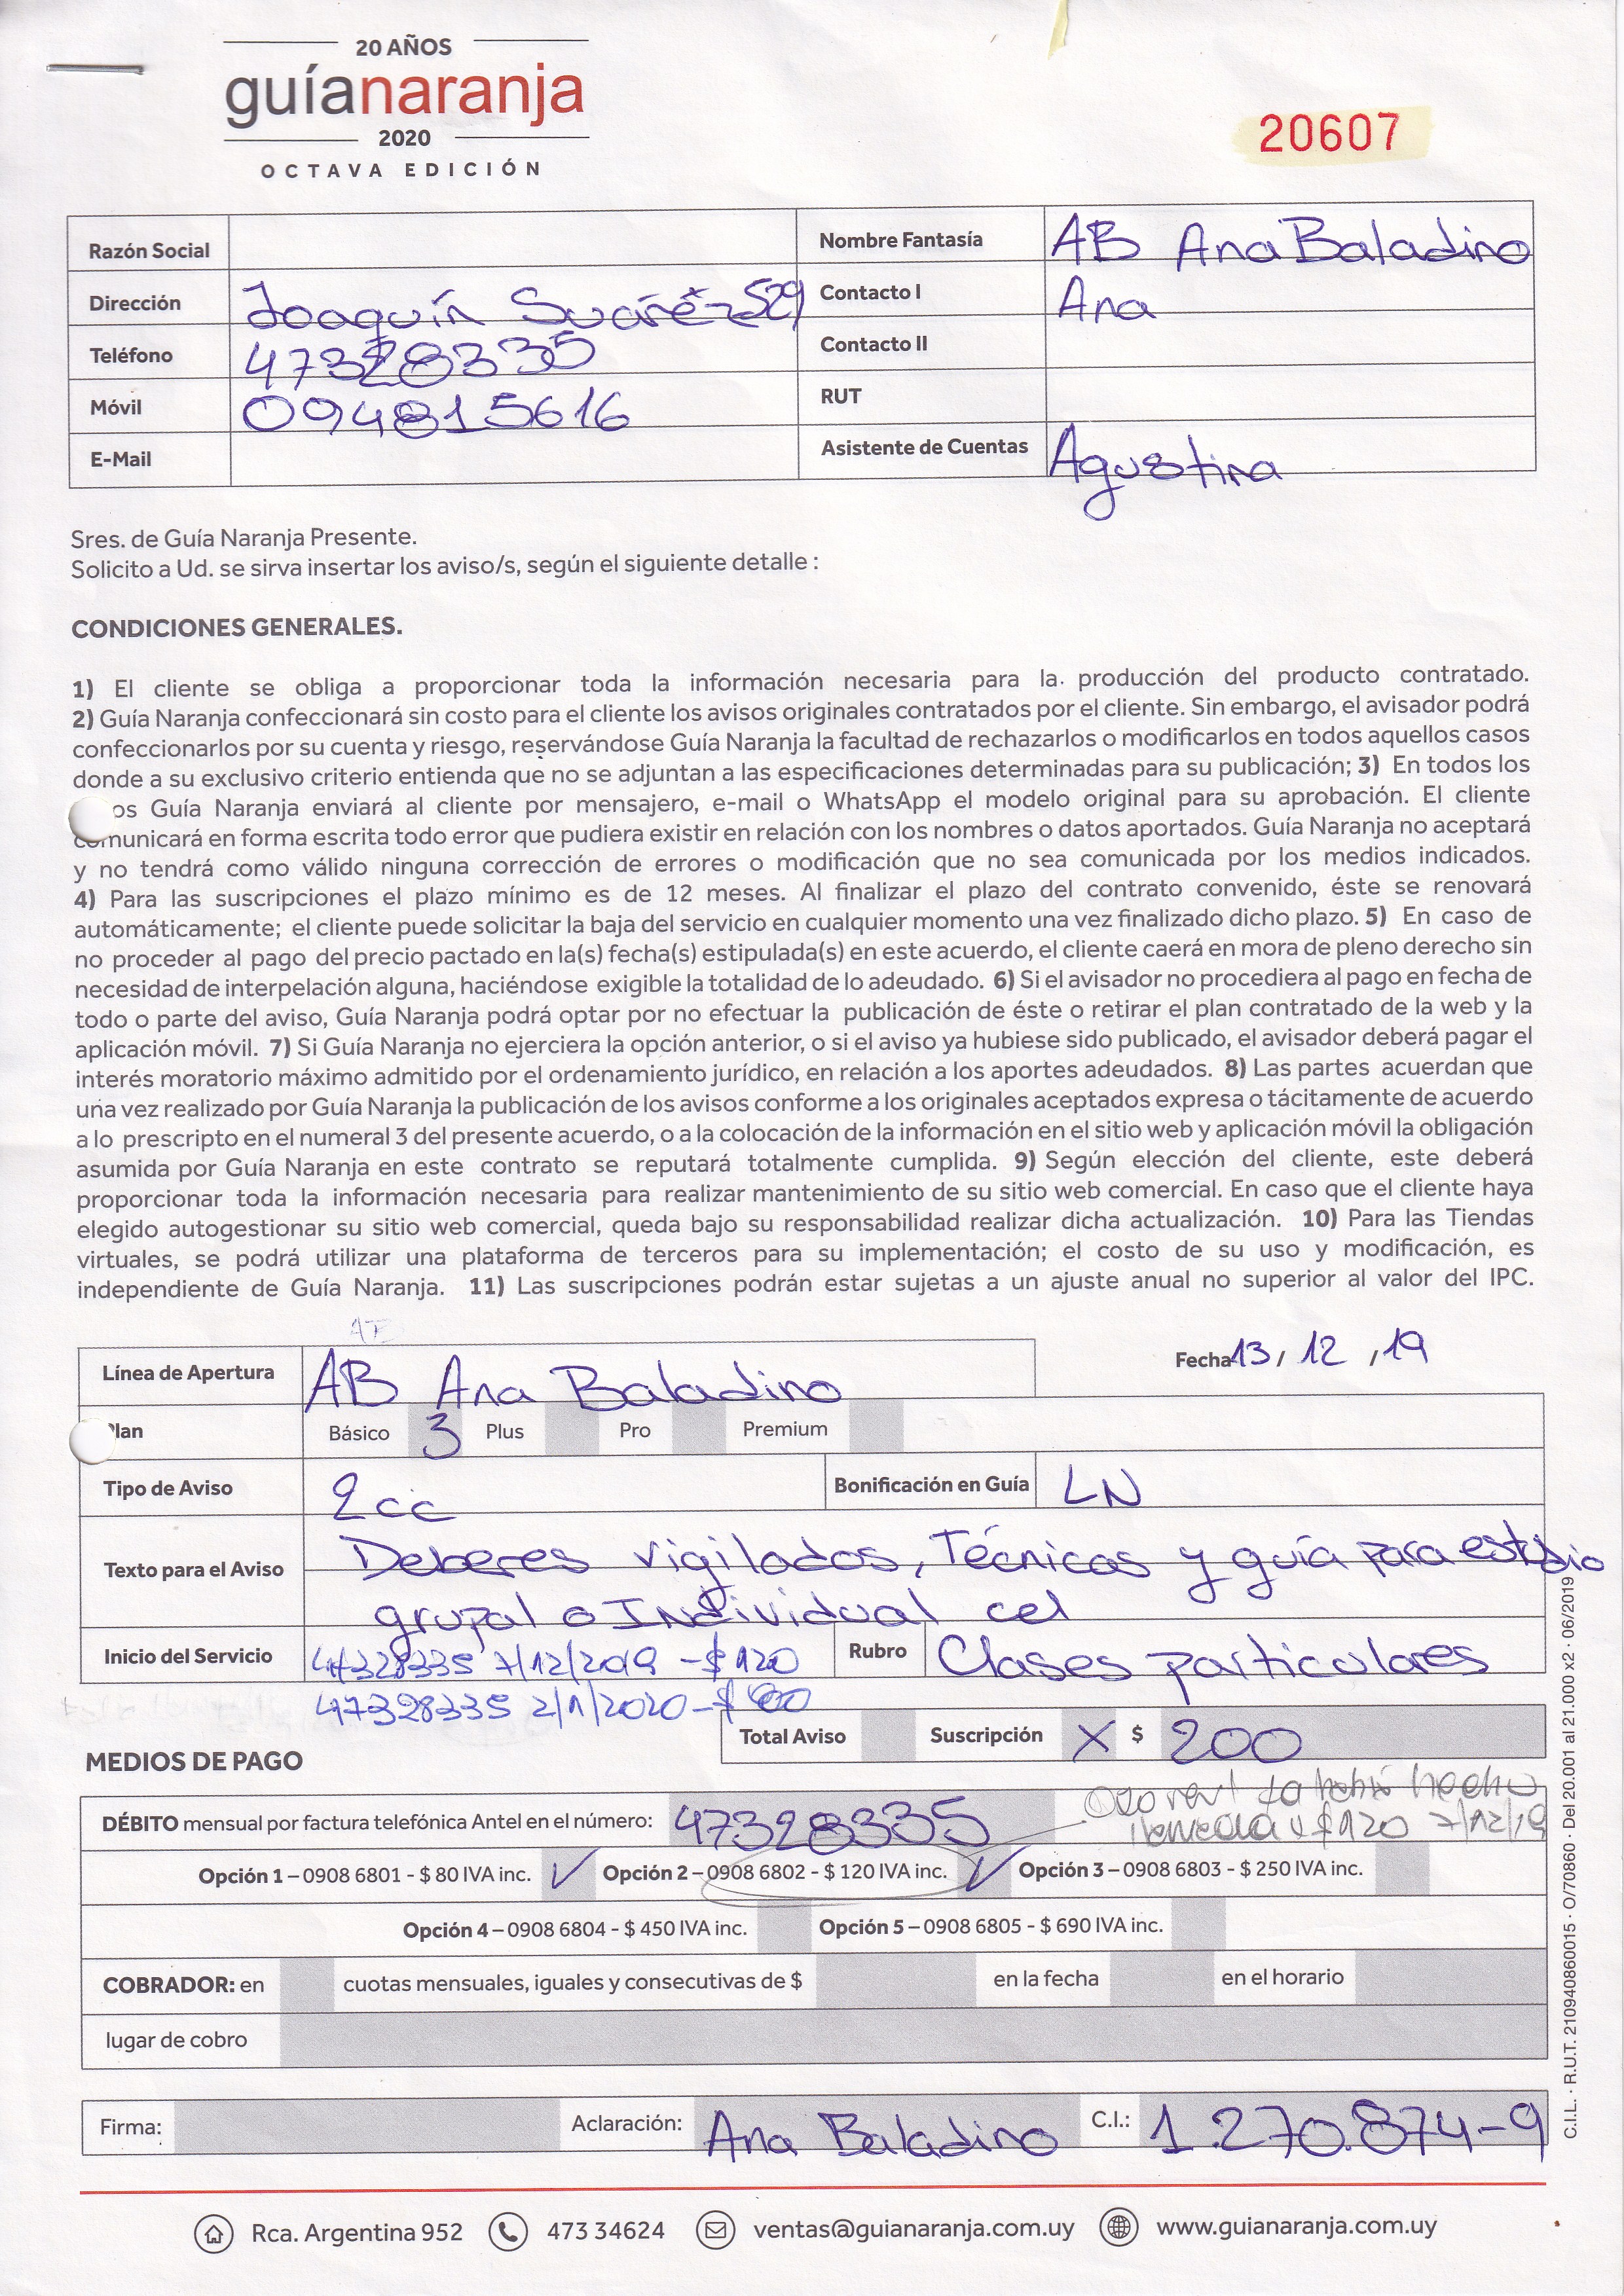 20 AÑOS
guíanaranja
2020
OCTAVA EDICIÓN
20607
Razón Social
Nombre Fantasía AB Ana Baladino
Dirección Joaquín Suárez 529
Contacto I Ana
Teléfono 47328335
Contacto II
Móvil 094815616
RUT
E-Mail
Asistente de Cuentas Agustina
Sres. de Guía Naranja Presente.
Solicito a Ud. se sirva insertar los aviso/s, según el siguiente detalle :
CONDICIONES GENERALES.
1) El cliente se obliga a proporcionar toda la información necesaria para la producción del producto contratado.
2) Guía Naranja confeccionará sin costo para el cliente los avisos originales contratados por el cliente. Sin embargo, el avisador podrá
confeccionarlos por su cuenta y riesgo, reservándose Guía Naranja la facultad de rechazarlos o modificarlos en todos aquellos casos
donde a su exclusivo criterio entienda que no se adjuntan a las especificaciones determinadas para su publicación; 3) En todos los
os Guía Naranja enviará al cliente por mensajero, e-mail o WhatsApp el modelo original para su aprobación. El cliente
comunicará en forma escrita todo error que pudiera existir en relación con los nombres o datos aportados. Guía Naranja no aceptará
y no tendrá como válido ninguna corrección de errores o modificación que no sea comunicada por los medios indicados.
4) Para las suscripciones el plazo mínimo es de 12 meses. Al finalizar el plazo del contrato convenido, éste se renovará
automáticamente; el cliente puede solicitar la baja del servicio en cualquier momento una vez finalizado dicho plazo. 5) En caso de
no proceder al pago del precio pactado en la(s) fecha(s) estipulada(s) en este acuerdo, el cliente caerá en mora de pleno derecho sin
necesidad de interpelación alguna, haciéndose exigible la totalidad de lo adeudado. 6) Si el avisador no procediera al pago en fecha de
todo o parte del aviso, Guía Naranja podrá optar por no efectuar la publicación de éste o retirar el plan contratado de la web y la
aplicación móvil. 7) Si Guía Naranja no ejerciera la opción anterior, o si el aviso ya hubiese sido publicado, el avisador deberá pagar el
interés moratorio máximo admitido por el ordenamiento jurídico, en relación a los aportes adeudados. 8) Las partes acuerdan que
una vez realizado por Guía Naranja la publicación de los avisos conforme a los originales aceptados expresa o tácitamente de acuerdo
a lo prescripto en el numeral 3 del presente acuerdo, o a la colocación de la información en el sitio web y aplicación móvil la obligación
asumida por Guía Naranja en este contrato se reputará totalmente cumplida. 9) Según elección del cliente, este deberá
proporcionar toda la información necesaria para realizar mantenimiento de su sitio web comercial. En caso que el cliente haya
elegido autogestionar su sitio web comercial, queda bajo su responsabilidad realizar dicha actualización. 10) Para las Tiendas
virtuales, se podrá utilizar una plataforma de terceros para su implementación; el costo de su uso y modificación, es
independiente de Guía Naranja. 11) Las suscripciones podrán estar sujetas a un ajuste anual no superior al valor del IPC.
Línea de Apertura AB Ana Baladino
Fecha 13 / 12 / 19
Plan Básico 3 Plus Pro Premium
Tipo de Aviso 2cc Bonificación en Guía LN
Texto para el Aviso Deberes vigilados, Técnicas y guía para estudio
grupal o INdividual cel
Inicio del Servicio 47328335 7/12/2019 - $ 120 Rubro Clases particulares
47328335 2/1/2020 - $ 80
Total Aviso Suscripción X $ 200
MEDIOS DE PAGO
hecho
$120 7/12/19
DÉBITO mensual por factura telefónica Antel en el número: 47328335
Opción 1 – 0908 6801 - $ 80 IVA inc. ✓ Opción 2 – 0908 6802 - $ 120 IVA inc. ✓ Opción 3 – 0908 6803 - $ 250 IVA inc.
Opción 4 – 0908 6804 - $ 450 IVA inc. Opción 5 – 0908 6805 - $ 690 IVA inc.
COBRADOR: en cuotas mensuales, iguales y consecutivas de $ en la fecha en el horario
lugar de cobro
Firma: Aclaración: Ana Baladino C.I.: 1.270.874-9
C.I.L. · R.U.T. 210940860015 · O/70860 · Del 20.001 al 21.000 x2 · 06/2019
Rca. Argentina 952 473 34624 ventas@guianaranja.com.uy www.guianaranja.com.uy